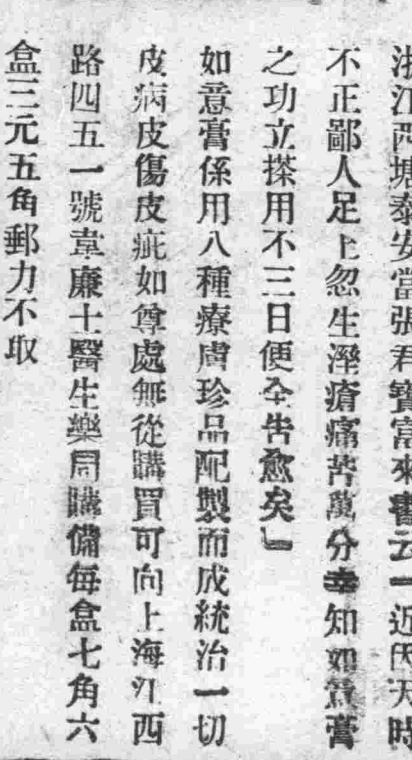 浙江西塘泰安當張君寶富來書云「近因天時
不正鄙人足上忽生溼瘡痛苦萬分幸知如意膏
之功立搽用不三日便全告愈矣」
如意膏係用八種療膚珍品配製而成統治一切
皮病皮傷皮疵如尊處無從購買可向上海江西
路四五一號韋廉士醫生藥局購備每盒七角六
盒三元五角郵力不取